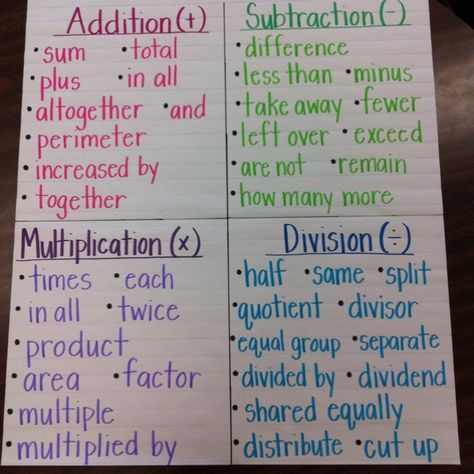 Addition (+)
• sum • total
• plus • in all
• altogether • and
• perimeter
• increased by
• together
Subtraction (-)
• difference
• less than • minus
• take away • fewer
• left over • exceed
• are not • remain
• how many more
Multiplication (x)
• times • each
• in all • twice
• product
• area • factor
• multiple
• multiplied by
Division (÷)
• half • same • split
• quotient • divisor
• equal group • separate
• divided by • dividend
• shared equally
• distribute • cut up